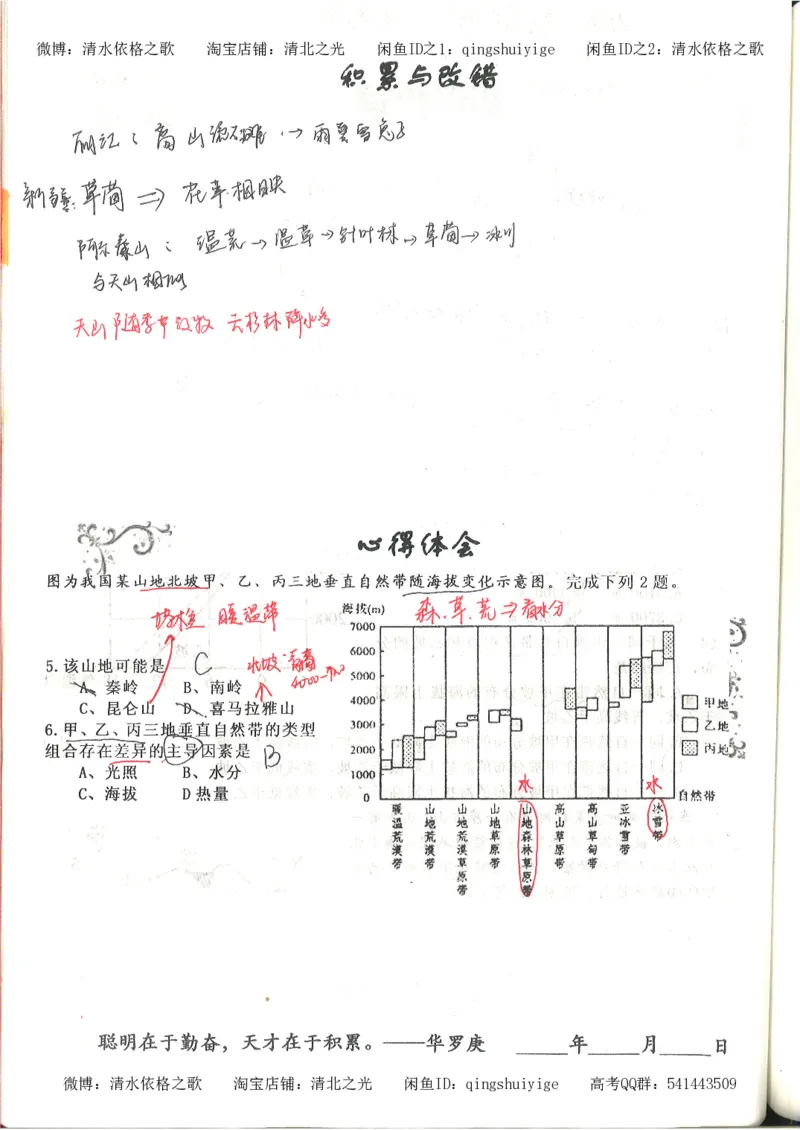 微博：清水依格之歌 淘宝店铺：清北之光 闲鱼ID之1：qingshuiyige 闲鱼ID之2：清水依格之歌
积累与改错
丽江：高山流石滩 → 雨
新疆：草甸 ⇒ 花草相映
阿尔泰山：温荒→温草→针叶林→草甸→冰川
与天山相似
天山随季节放牧 云杉林降水多
心得体会
图为我国某山地北坡甲、乙、丙三地垂直自然带随海拔变化示意图。完成下列2题。
暖温带
森.草.荒⇒看水分
海拔(m)
7000
6000
5000
4000
3000
2000
1000
0
甲地
乙地
丙地
水
水
自然带
暖温荒漠带
山地荒漠带
山地荒漠草原带
山地草原带
山地森林草原带
高山草原带
高山草甸带
亚冰雪带
冰雪带
5.该山地可能是 C
北坡
A、秦岭 B、南岭
C、昆仑山 D、喜马拉雅山
6.甲、乙、丙三地垂直自然带的类型
组合存在差异的主导因素是 B
A、光照 B、水分
C、海拔 D热量
聪明在于勤奋，天才在于积累。——华罗庚 _____年_____月_____日
微博：清水依格之歌 淘宝店铺：清北之光 闲鱼ID：qingshuiyige 高考QQ群：541443509